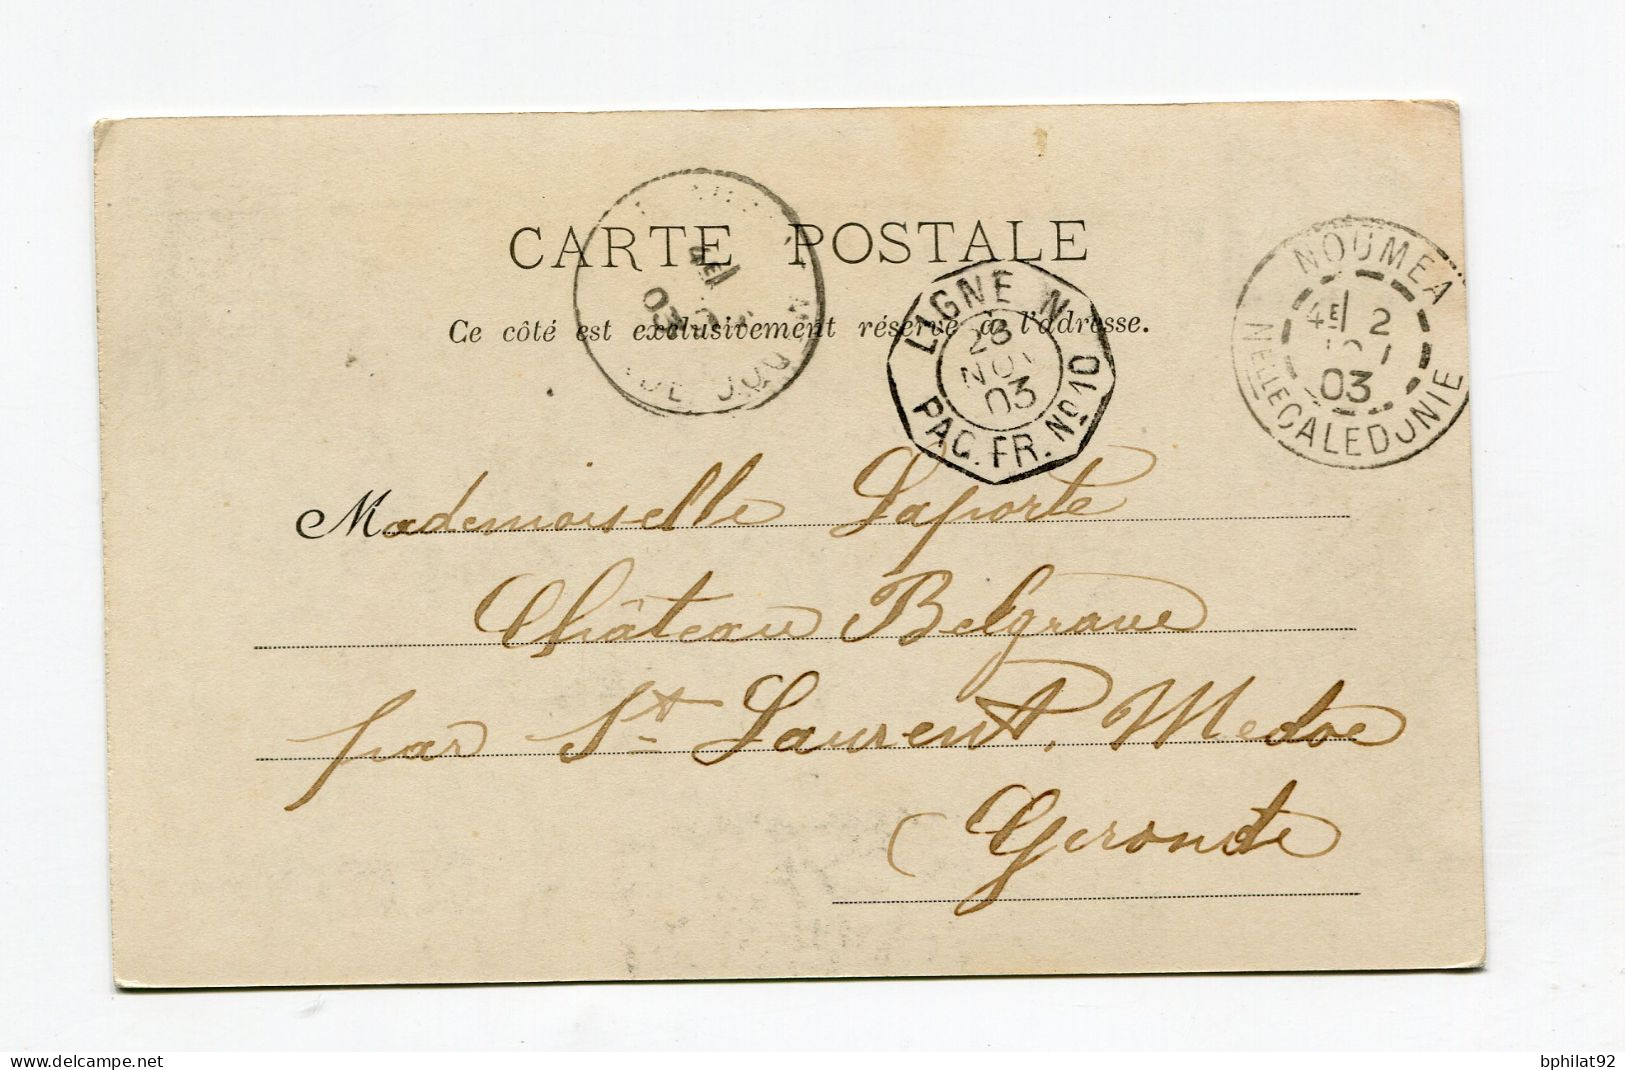 CARTE POSTALE
Ce côté est exclusivement réservé à l'adresse.
LIGNE N
PAQ. FR. No 10
03
NOUMEA
4E 2
03
NELLE CALEDONIE
4E
03
Mademoiselle Laporte
Château Belgrave
par St Laurent, Medoc
Gironde
www.delcampe.net
bphilat92